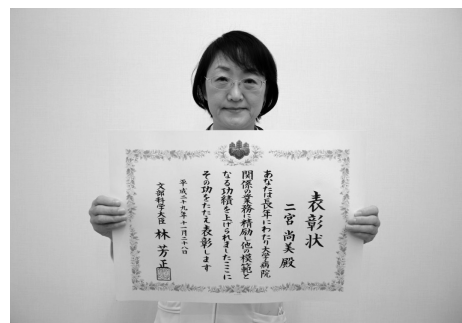 表彰状
二宮尚美殿
あなたは長年にわたり大学病院
関係の業務に精励し他の模範と
なる功績を上げられましたここに
その功をたたえ表彰します
平成二十九年十一月二十八日
文部科学大臣 林芳正